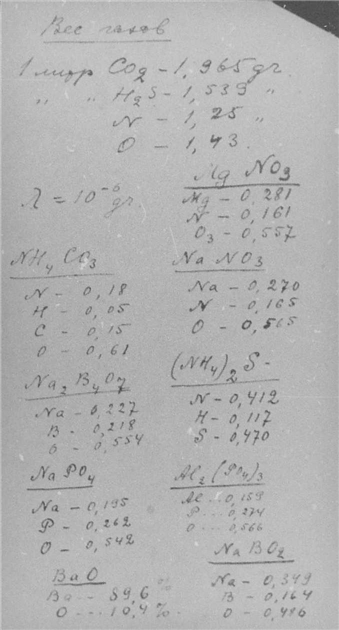 Вес газов
1 литр CO2 – 1,965 gr.
„ „ H2S – 1,539 „
N – 1,25 „
O – 1,43.
λ = 10⁻⁶ gr.
Mg NO3
Mg – 0,281
N – 0,161
O3 – 0,557
NH4 CO3
N – 0,18
H – 0,05
C – 0,15
O – 0,61
Na NO3
Na – 0,270
N – 0,165
O – 0,565
Na2 B4O7
Na – 0,227
B – 0,218
O – 0,554
(NH4)2 S –
N – 0,412
H – 0,117
S – 0,470
Na PO4
Na – 0,195
P – 0,262
O – 0,542
Al2 (PO4)3
Al – 0,159
P – 0,274
O – 0,566
BaO
Ba – 89,6 %
O – 10,4 %
Na BO2
Na – 0,349
B – 0,164
O – 0,486